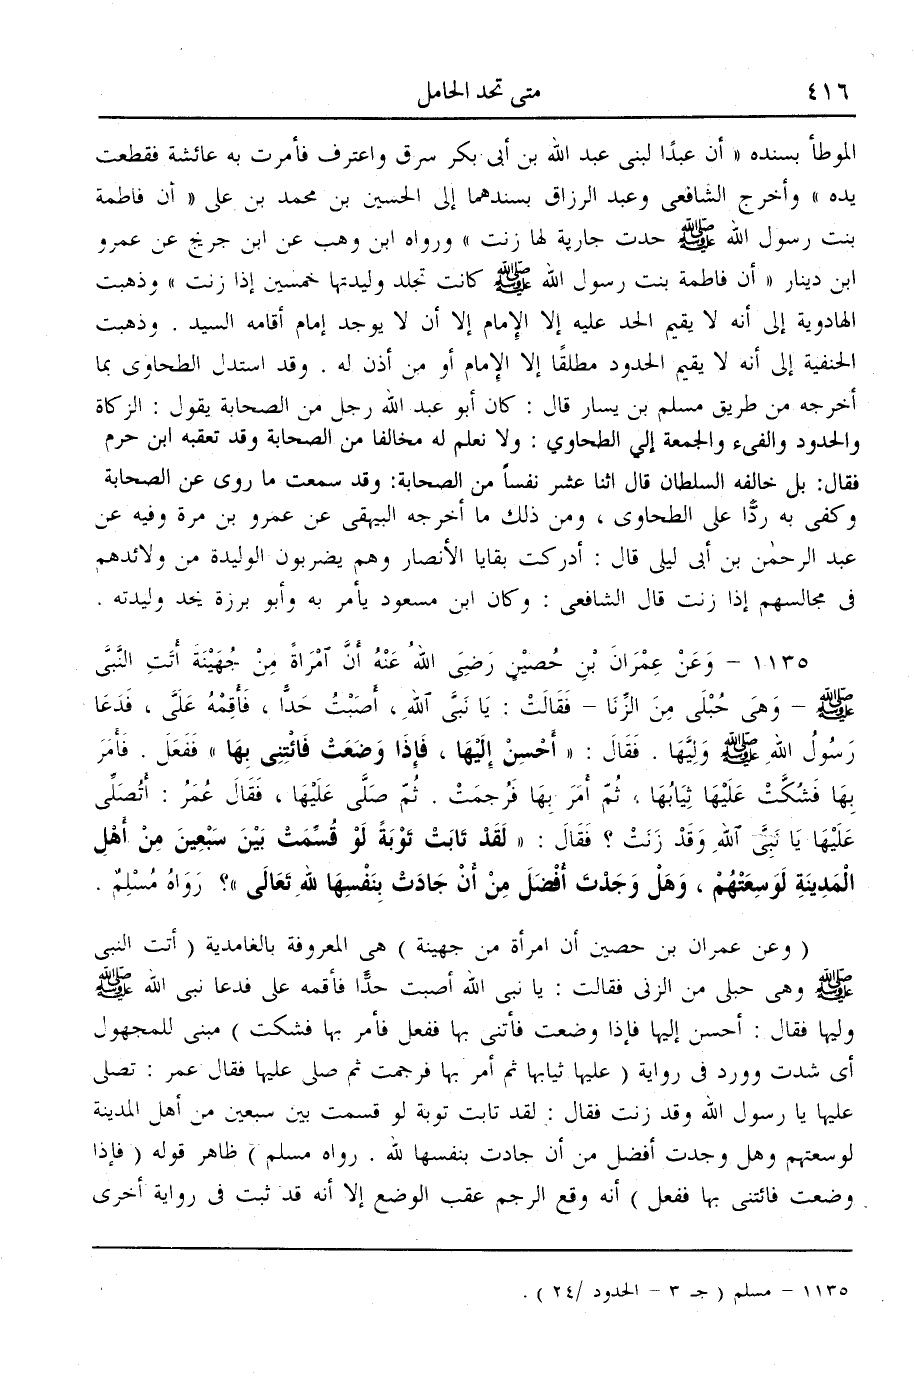 ٤١٦ متى تحد الحامل
الموطأ بسنده « أن عبدًا لبنى عبد الله بن أبى بكر سرق واعترف فأمرت به عائشة فقطعت
يده » وأخرج الشافعى وعبد الرزاق بسندهما إلى الحسين بن محمد بن على « أن فاطمة
بنت رسول الله ﷺ حدت جارية لها زنت » ورواه ابن وهب عن ابن جريج عن عمرو
ابن دينار « أن فاطمة بنت رسول الله ﷺ كانت تجلد وليدتها خمسين إذا زنت » وذهبت
الهادوية إلى أنه لا يقيم الحد عليه إلا الإمام إلا أن لا يوجد إمام أقامه السيد . وذهبت
الحنفية إلى أنه لا يقيم الحدود مطلقًا إلا الإمام أو من أذن له . وقد استدل الطحاوى بما
أخرجه من طريق مسلم بن يسار قال : كان أبو عبد الله رجل من الصحابة يقول : الزكاة
والحدود والفىء والجمعة إلي الطحاوي : ولا نعلم له مخالفا من الصحابة وقد تعقبه ابن حرم
فقال: بل خالفه السلطان قال اثنا عشر نفساً من الصحابة: وقد سمعت ما روى عن الصحابة
وكفى به ردًّا على الطحاوى ، ومن ذلك ما أخرجه البيهقى عن عمرو بن مرة وفيه عن
عبد الرحمٰن بن أبى ليلى قال : أدركت بقايا الأنصار وهم يضربون الوليدة من ولائدهم
فى مجالسهم إذا زنت قال الشافعى : وكان ابن مسعود يأمر به وأبو برزة يحد وليدته .
١١٣٥ – وَعَنْ عِمْرَانَ بْنِ حُصَيْنٍ رَضِىَ اللهُ عَنْهُ أَنَّ آمْرَاةً مِنْ جُهَيْنَةَ أَتَتِ النَّبِىَّ
ﷺ – وَهِىَ حُبْلَى مِنَ الزِّنَا – فَقَالَتْ : يَا نَبِىَّ ٱللهِ ، أَصَبْتُ حَدًّا ، فَأَقِمْهُ عَلَىَّ ، فَدَعَا
رَسُولُ اللهِ ﷺ وَلِيَّهَا . فَقَالَ : « أَحْسِنْ إِلَيْهَا ، فَإِذَا وَضَعَتْ فَائْتِنِى بِهَا » فَفَعَلَ . فَأَمَرَ
بِهَا فَشُكَّتْ عَلَيْهَا ثِيَابُهَا ، ثُمَّ أَمَرَ بِهَا فَرُجِمَتْ . ثُمَّ صَلَّى عَلَيْهَا ، فَقَالَ عُمَرُ : أَتُصَلِّى
عَلَيْهَا يَا نَبِىَّ ٱللهِ وَقَدْ زَنَتْ ؟ فَقَالَ : « لَقَدْ تَابَتْ تَوْبَةً لَوْ قُسِّمَتْ بَيْنَ سَبْعِينَ مِنْ أَهْلِ
الْمَدِينَةِ لَوَسِعَتْهُمْ ، وَهَلْ وَجَدْتَ أَفْضَلَ مِنْ أَنْ جَادَتْ بِنَفْسِهَا للهِ تَعَالَى »؟ رَوَاهُ مُسْلِمٌ .
( وعن عمران بن حصين أن امرأة من جهينة ) هى المعروفة بالغامدية ( أتت النبى
ﷺ وهى حبلى من الزنى فقالت : يا نبى الله أصبت حدًّا فأقمه على فدعا نبى الله ﷺ
وليها فقال : أحسن إليها فإذا وضعت فأتنى بها ففعل فأمر بها فشكت ) مبنى للمجهول
أى شدت وورد فى رواية ( عليها ثيابها ثم أمر بها فرجمت ثم صلى عليها فقال عمر : تصلى
عليها يا رسول الله وقد زنت فقال : لقد تابت توبة لو قسمت بين سبعين من أهل المدينة
لوسعتهم وهل وجدت أفضل من أن جادت بنفسها لله . رواه مسلم ) ظاهر قوله ( فإذا
وضعت فائتنى بها ففعل ) أنه وقع الرجم عقب الوضع إلا أنه قد ثبت فى رواية أخرى
١١٣٥ – مسلم ( جـ ٣ – الحدود /٢٤ ) .